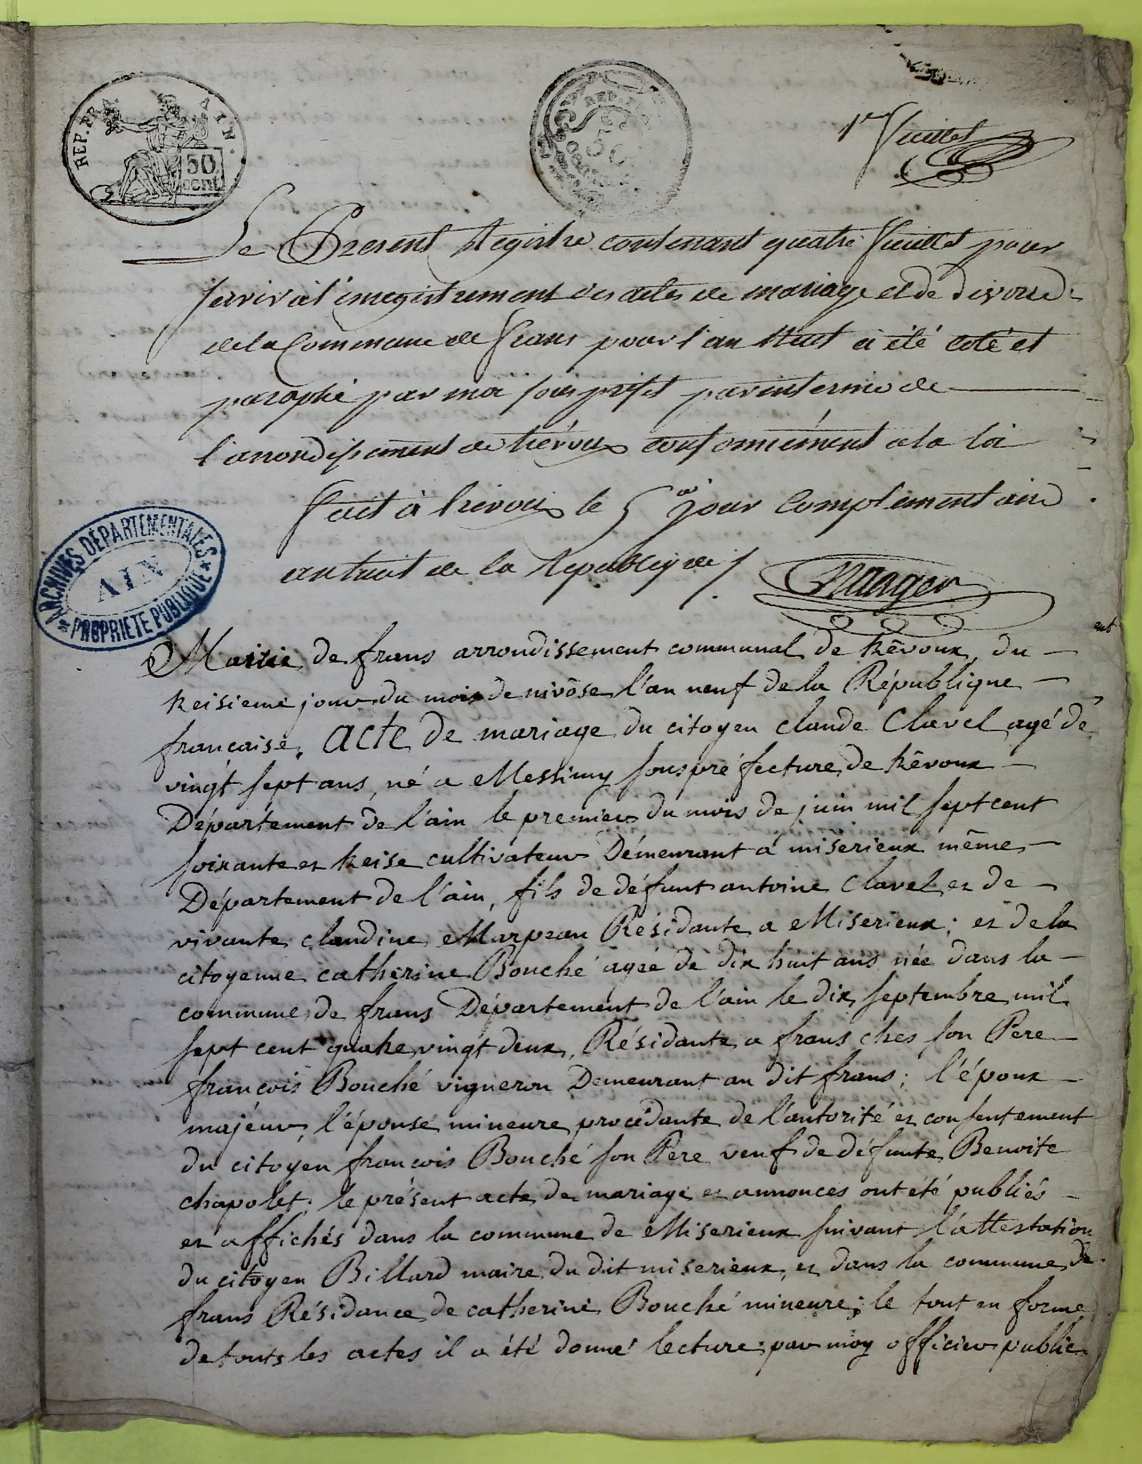 REP. FRA. AIN.
50 cent
REP. FRA.
50
1er feuillet
Le Present Registre contenant quatre feuillet pour
servir à l'enregistrement des actes de mariage et de divorce
de la Commune de frans pour l'an neuf a été coté et
paraphé par moi sous préfet par interim de
l'arrondissement de trévoux conformément a la loi
fait à trévoux le 5e jour complémentaire
an huit de la Republique /.
ARCHIVES DÉPARTEMENTALES
AIN
PROPRIÉTÉ PUBLIQUE
Mairie de frans arrondissement communal de trêvoux, du
treisieme jour du mois de nivôse l'an neuf de la République
francaise. acte de mariage du citoyen claude Clavel agé de
vingt sept ans, né a Messimy souspréfecture de trêvoux
Département de l'ain le premier du mois de juin mil sept cent
soixante et treise cultivateur Démeurant a miserieux même
Département de l'ain, fils de défunt antoine Clavel et de
vivante claudine Marpeau Résidante a Miserieux; et de la
citoyenne catherine Bouché agée de dix huit ans née dans la
commune de frans Département de l'ain le dix septembre mil
sept cent quatre vingt deux, Résidante a frans ches son Pere
francois Bouché vigneron Demeurant au dit frans; l'époux
majéur, l'épouse mineure procédante de l'autorité et consentement
du citoyen francois Bouché son Pere veuf de défunte Benoite
chapolet; le présent acte de mariage et annonces ont été publiés
et affichés dans la commune de Miserieux suivant l'attestation
du citoyen Billard maire du dit miserieux, et dans la commune de
frans Résidance de catherine Bouché mineure; le tout en forme
de touts les actes il a été donné lecture par moy officier public